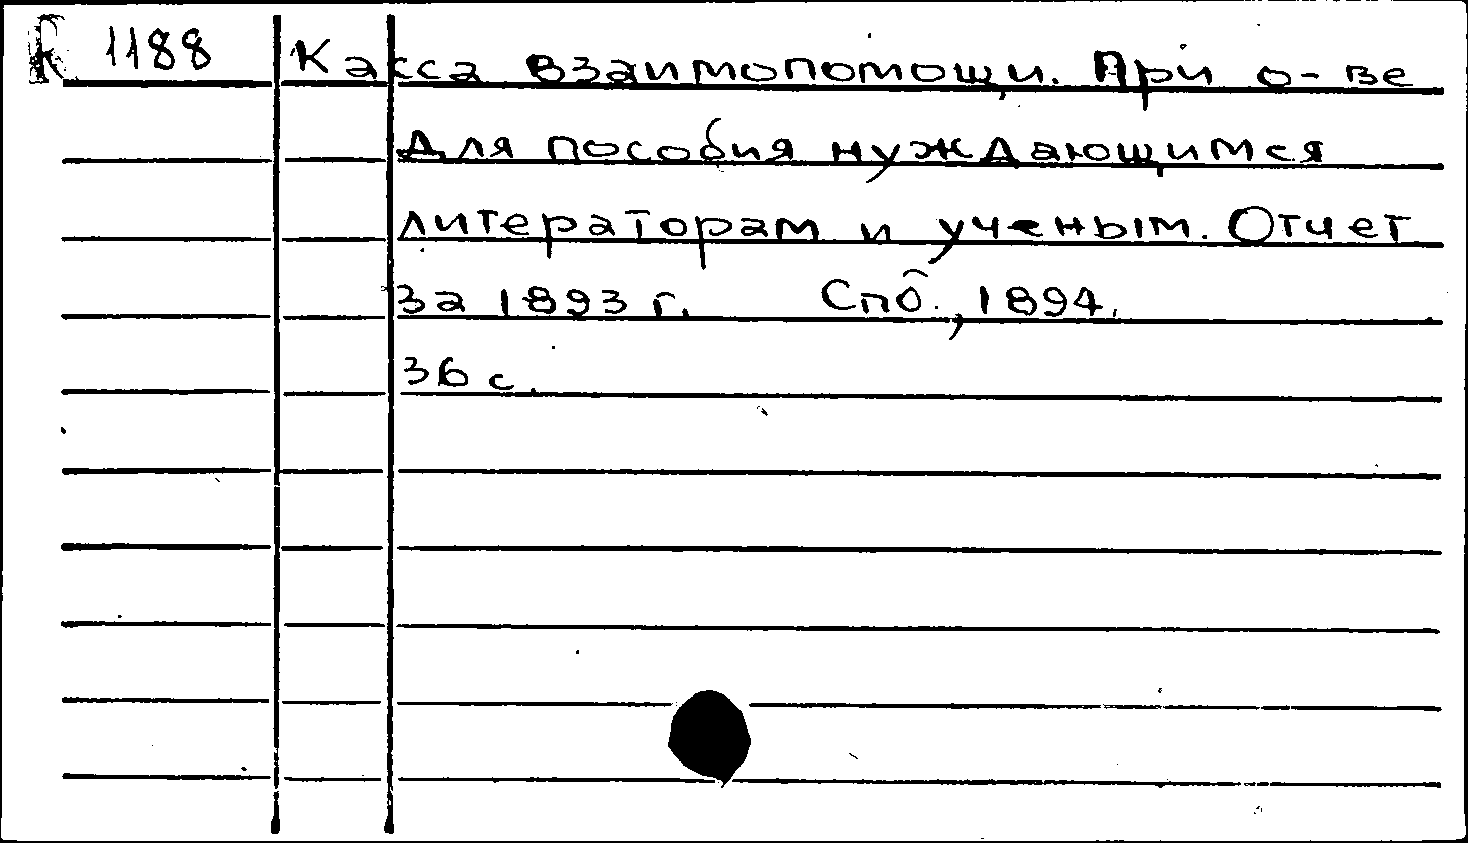 К 1188 Касса взаимопомощи. При о-ве
для пособия нуждающимся
литераторам и ученым. Отчет
за 1893 г. Спб., 1894.
36 с.